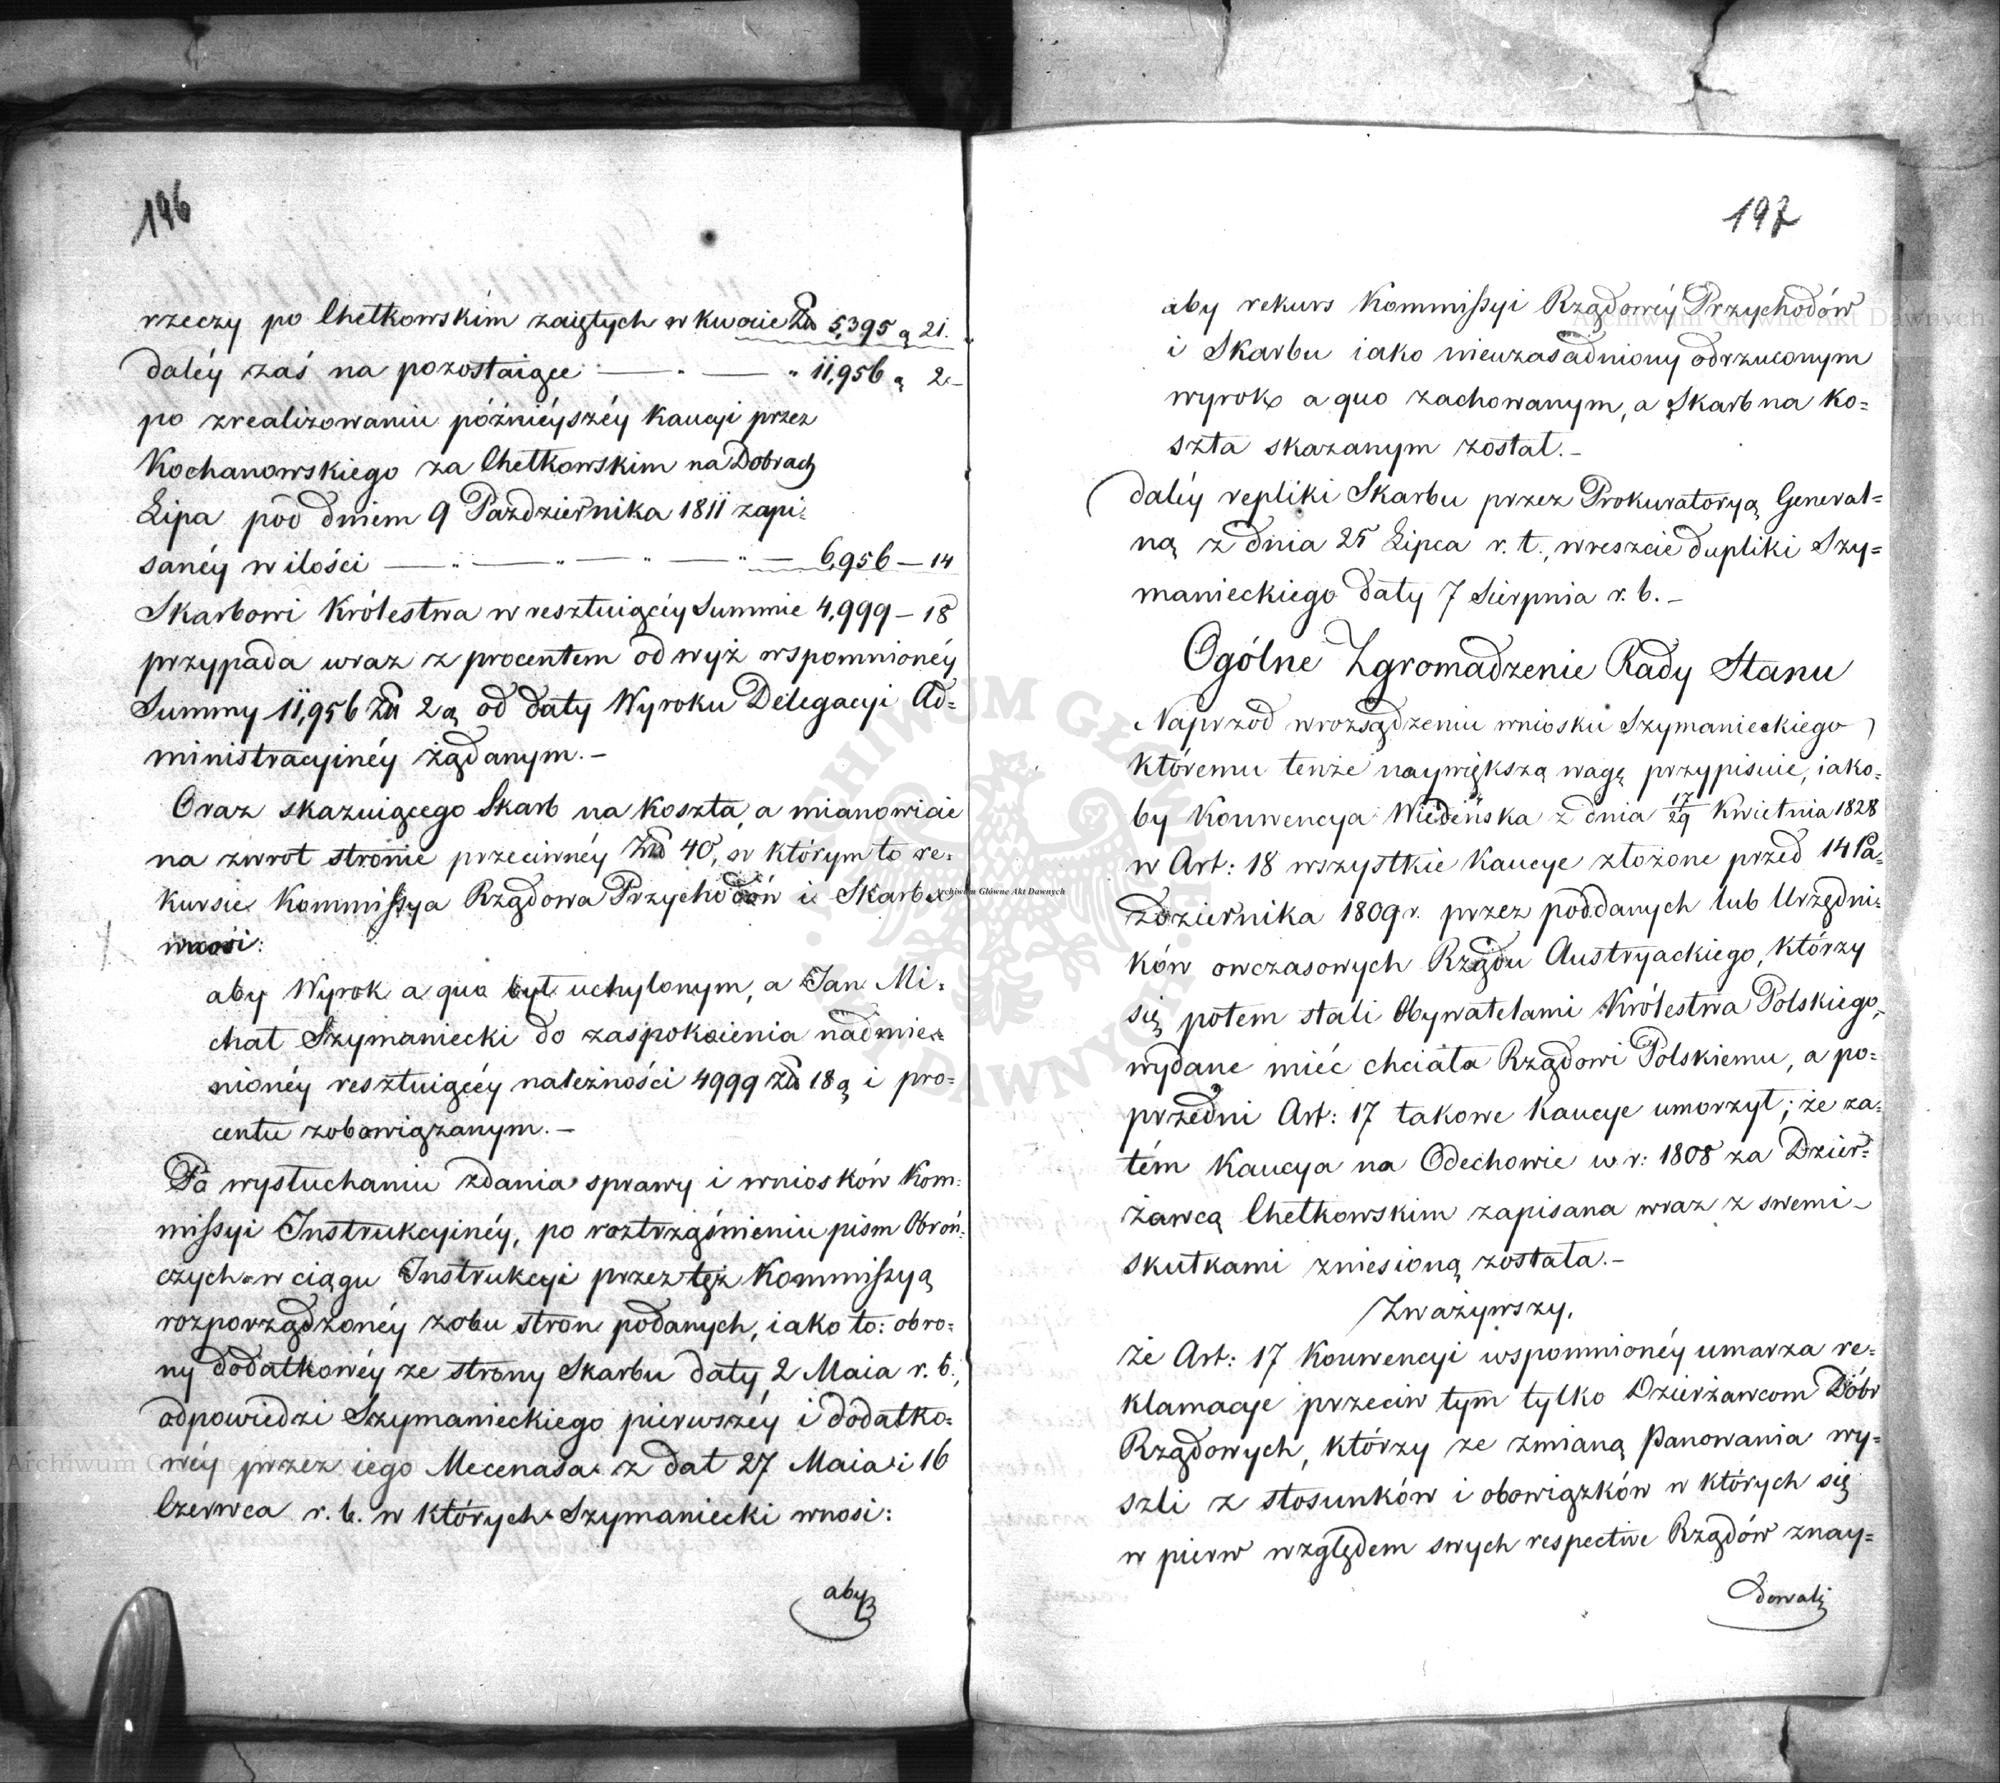 196
rzeczy po Chełkowskim zaiętych w kwocie Złł 5,395 g 21.
daléy zaś na pozostaiące — " — " 11,956 g 2.—
po zrealizowaniu późnieyszéy Kaucyi przez
Kochanowskiego za Chełkowskim na Dobrach
Lipa pod dniem 9 Pazdziernika 1811 zapi-
sanéy w ilości — " — " — " — " — 6,956 — 14
Skarbowi Królestwa w resztuiącéy Summie 4,999 — 18
przypada wraz z procentem od wyż wspomnionéy
Summy 11,956 Złł 2 g od daty Wyroku Delegacyi Ad=
ministracyinéy żądanym. —
Oraz skazuiącego Skarb na koszta, a mianowicie
na zwrot stronie przeciwnéy Złł 40, w którym to re-
kursie Kommissya Rządowa Przychodów i Skarbu
wnosi:
aby Wyrok a quo był uchylonym, a Jan Mi-
chał Szymaniecki do zaspokoienia nadmie-
nionéy resztuiącéy należności 4999 Złł 18 g i pro=
centu zobowiązanym. —
Po wysłuchaniu zdania sprawy i wniosków Kom-
missyi Instrukcyinéy, po roztrząśnieniu pism Obroń-
czych w ciągu Instrukcyi przez też Kommissyą
rozporządzonéy z obu stron podanych, iako to: obro=
ny dodatkowéy ze strony Skarbu daty 2 Maia r. b.,
odpowiedzi Szymanieckiego pierwszéy i dodatko=
wéy przez iego Mecenasa z dat 27 Maia i 16
Czerwca r. b. w których Szymaniecki wnosi:
aby
197
aby rekurs Kommissyi Rządowéy Przychodów
i Skarbu iako nieuzasadniony odrzuconym
wyrok a quo zachowanym, a Skarb na ko=
szta skazanym został. —
daléy repliki Skarbu przez Prokuratoryą General=
ną z dnia 25 Lipca r. t., wreszcie dupliki Szy=
manieckiego daty 7 Sierpnia r. b. —
Ogólne Zgromadzenie Rady Stanu
Naprzód w rozsądzeniu wniosku Szymanieckiego
któremu tenże naywiększą wagę przypisuie, iako-
by Konwencya Wiedeńska z dnia 17/29 Kwietnia 1828
w Art: 18 wszystkie Kaucye złożone przed 14 Pa-
zdziernika 1809 r. przez poddanych lub Urzędni-
ków owczasowych Rządu Austryackiego, którzy
się potem stali Obywatelami Królestwa Polskiego,
wydane mieć chciała Rządowi Polskiemu, a po=
przedni Art: 17 takowe Kaucye umorzył; że za-
tém Kaucya na Odechowie w r: 1808 za Dzier-
żawcą Chełkowskim zapisana wraz z swemi
skutkami zniesioną została. —
Zważywszy,
że Art: 17 Konwencyi wspomnionéy umarza re-
klamacye przeciw tym tylko Dzierżawcom Dóbr
Rządowych, którzy ze zmianą Panowania wy=
szli z stosunków i obowiązków w których się
w pierw względem swych respective Rządów znay=
dowali
Archiwum Główne Akt Dawnych
Archiwum Główne Akt Dawnych
Archiwum Główne
ARCHIWUM GŁÓWNE AKT DAWNYCH